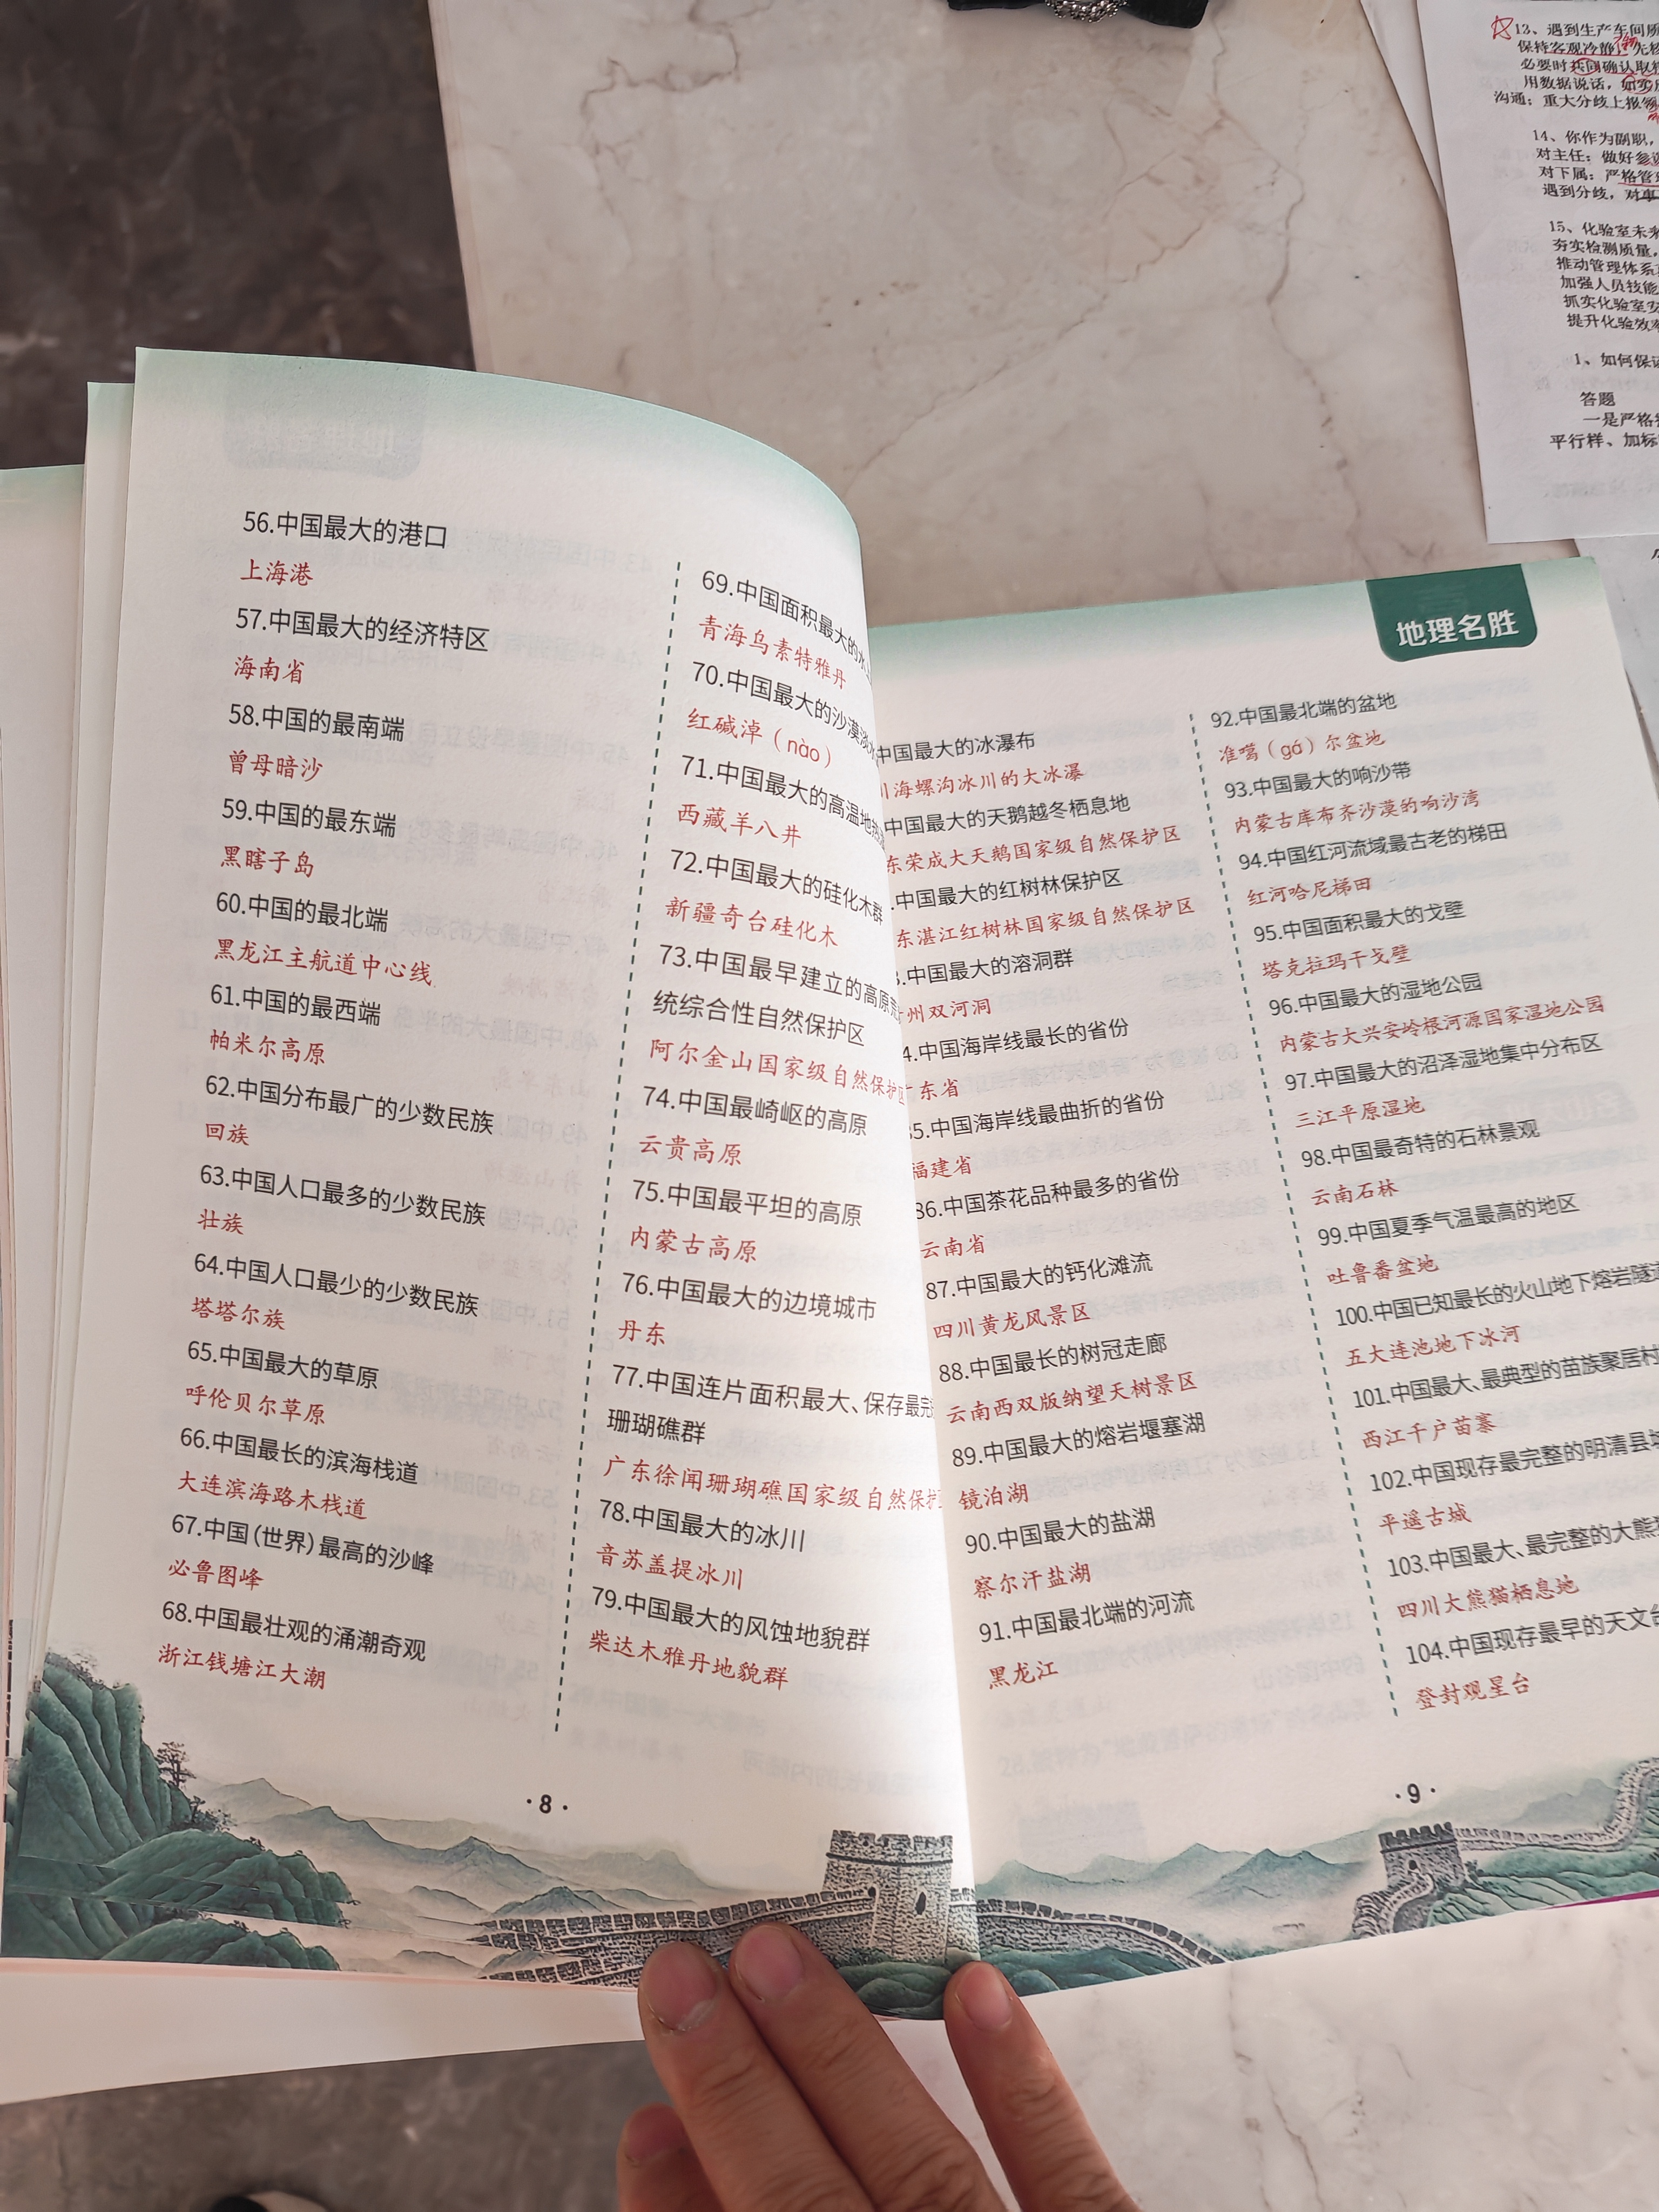 56.中国最大的港口
上海港
57.中国最大的经济特区
海南省
58.中国的最南端
曾母暗沙
59.中国的最东端
黑瞎子岛
60.中国的最北端
黑龙江主航道中心线
61.中国的最西端
帕米尔高原
62.中国分布最广的少数民族
回族
63.中国人口最多的少数民族
壮族
64.中国人口最少的少数民族
塔塔尔族
65.中国最大的草原
呼伦贝尔草原
66.中国最长的滨海栈道
大连滨海路木栈道
67.中国(世界)最高的沙峰
必鲁图峰
68.中国最壮观的涌潮奇观
浙江钱塘江大潮
69.中国面积最大的水
青海乌素特雅丹
70.中国最大的沙漠淡水
红碱淖（nào）
71.中国最大的高温地热
西藏羊八井
72.中国最大的硅化木群
新疆奇台硅化木
73.中国最早建立的高原荒
统综合性自然保护区
阿尔金山国家级自然保护区
74.中国最崎岖的高原
云贵高原
75.中国最平坦的高原
内蒙古高原
76.中国最大的边境城市
丹东
77.中国连片面积最大、保存最完
珊瑚礁群
广东徐闻珊瑚礁国家级自然保护
78.中国最大的冰川
音苏盖提冰川
79.中国最大的风蚀地貌群
柴达木雅丹地貌群
·8·
地理名胜
中国最大的冰瀑布
海螺沟冰川的大冰瀑
中国最大的天鹅越冬栖息地
东荣成大天鹅国家级自然保护区
.中国最大的红树林保护区
东湛江红树林国家级自然保护区
.中国最大的溶洞群
州双河洞
4.中国海岸线最长的省份
广东省
85.中国海岸线最曲折的省份
福建省
86.中国茶花品种最多的省份
云南省
87.中国最大的钙化滩流
四川黄龙风景区
88.中国最长的树冠走廊
云南西双版纳望天树景区
89.中国最大的熔岩堰塞湖
镜泊湖
90.中国最大的盐湖
察尔汗盐湖
91.中国最北端的河流
黑龙江
92.中国最北端的盆地
准噶（gá）尔盆地
93.中国最大的响沙带
内蒙古库布齐沙漠的响沙湾
94.中国红河流域最古老的梯田
红河哈尼梯田
95.中国面积最大的戈壁
塔克拉玛干戈壁
96.中国最大的湿地公园
内蒙古大兴安岭根河源国家湿地公园
97.中国最大的沼泽湿地集中分布区
三江平原湿地
98.中国最奇特的石林景观
云南石林
99.中国夏季气温最高的地区
吐鲁番盆地
100.中国已知最长的火山地下熔岩隧道
五大连池地下冰河
101.中国最大、最典型的苗族聚居村
西江千户苗寨
102.中国现存最完整的明清县城
平遥古城
103.中国最大、最完整的大熊猫
四川大熊猫栖息地
104.中国现存最早的天文台
登封观星台
·9·
13、遇到生产车间质
保持客观冷静，先核
必要时共同确认取样
用数据说话，如实
沟通；重大分歧上报
14、你作为副职，
对主任：做好参谋
对下属：严格管理
遇到分歧，对事
15、化验室未来
夯实检测质量，
推动管理体系
加强人员技能
抓实化验室安
提升化验效率
1、如何保证
答题
一是严格
平行样、加标